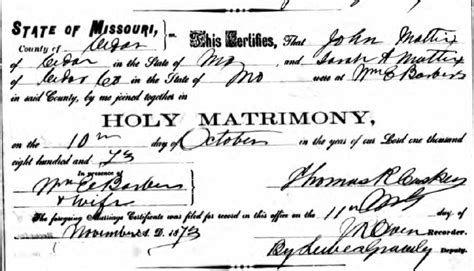 STATE OF MISSOURI,
County of Cedar
This Certifies, That John Mattix
of Cedar in the State of Mo and Sarah A Mattix
of Cedar Co in the State of Mo were at Wm E Barbers
in said County, by me joined together in
HOLY MATRIMONY,
on the 10th day of October in the year of our Lord one thousand
eight hundred and 73
In presence of
Wm E Barbers
& wife
Thomas R
The foregoing Marriage Certificate was filed for record in this office on the 11th day of
November A. D. 1873
Owen Recorder.
By Deputy.